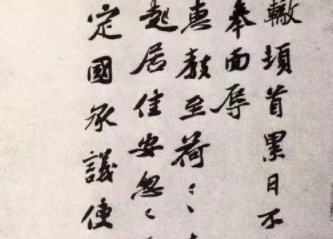 轍頓首累日不
奉面辱
惠教至荷〻
起居佳安忽〻
定國承議使